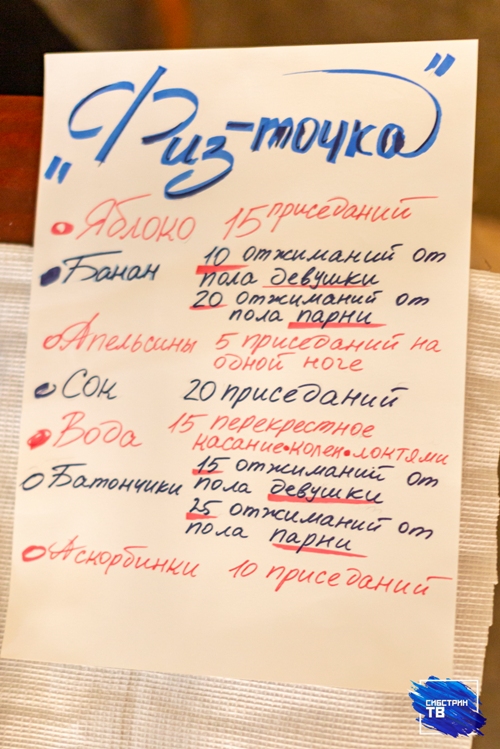 "Физ-точка"
Яблоко 15 приседаний
Банан 10 отжиманий от
пола девушки
20 отжиманий от
пола парни
Апельсины 5 приседаний на
одной ноге
Сок 20 приседаний
Вода 15 перекрестное
касание•колен•локтями
Батончики 15 отжиманий от
пола девушки
25 отжиманий от
пола парни
Аскорбинки 10 приседаний
СИБСТРИН
ТВ